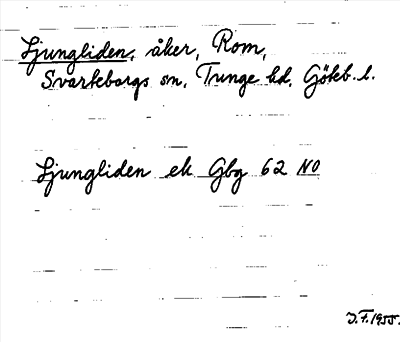 Ljungliden, åker, Rom,
Svarteborgs sn, Tunge hd. Göteb. l.
Ljungliden ek Gbg 62 NO
J.F. 1955.